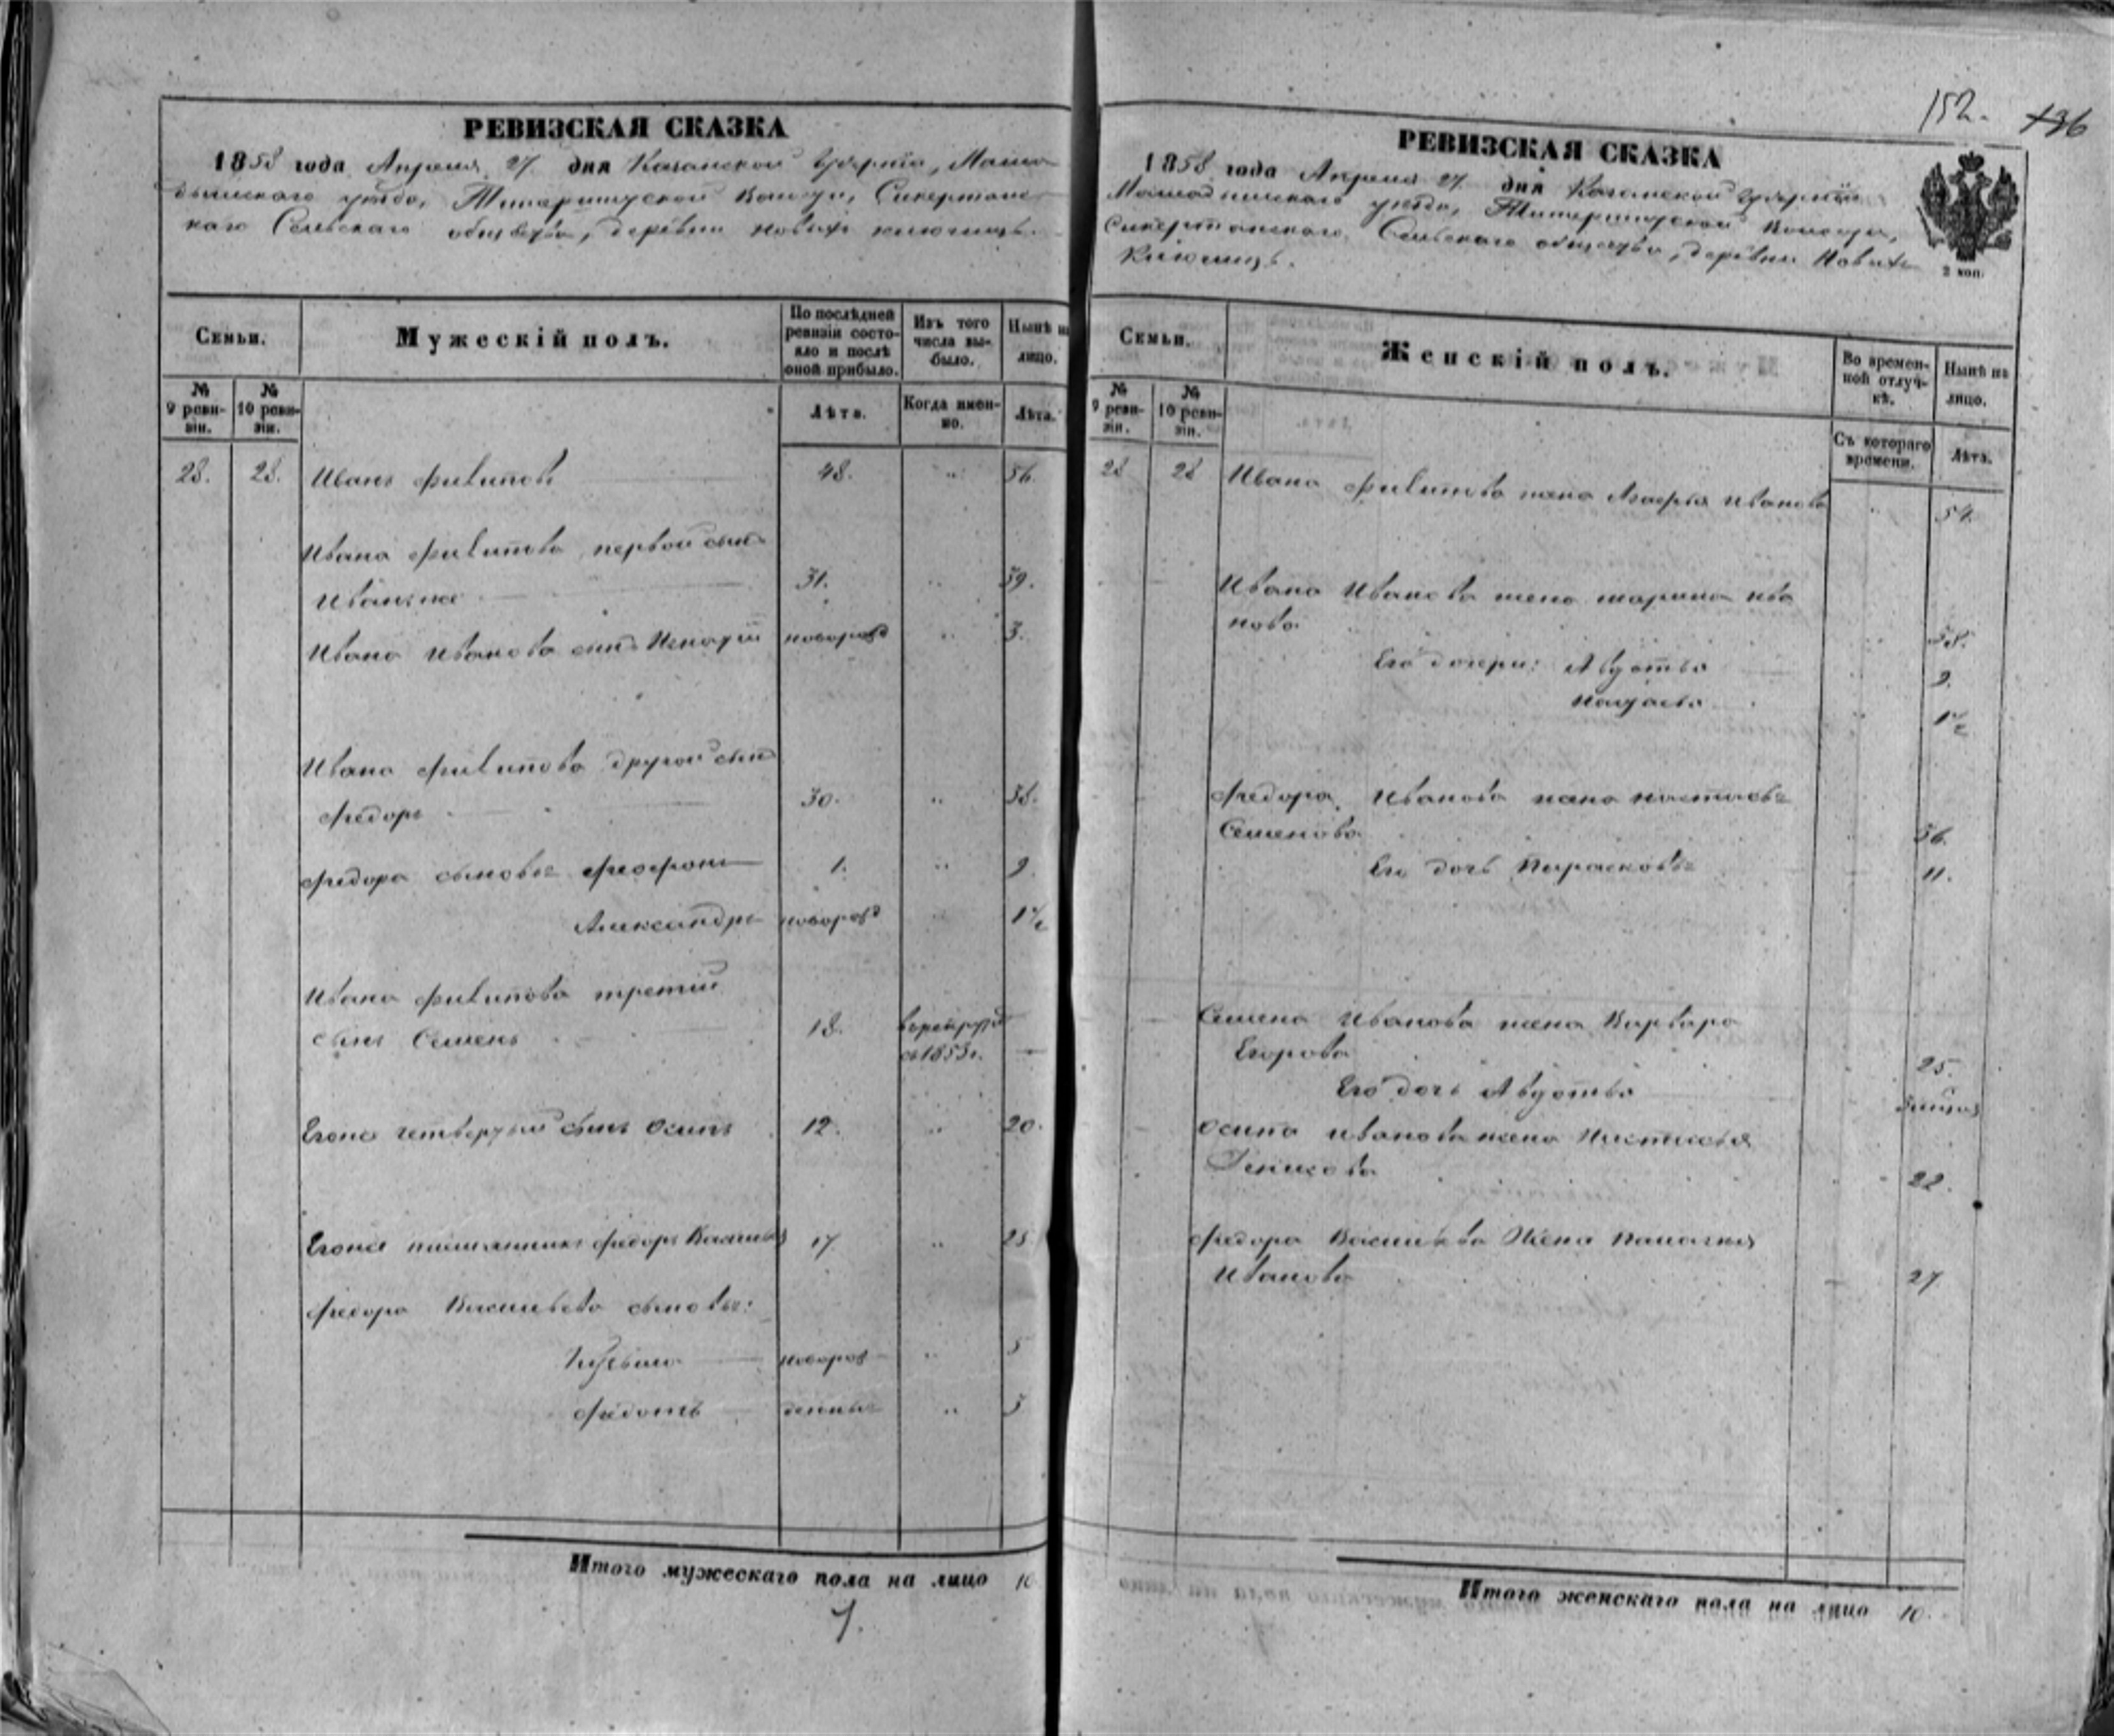 РЕВИЗСКАЯ СКАЗКА
1858 года Апреля 27 дня Казанской Губернiи, Мама-
дышскаго уѣзда, Волости,
каго Сельскаго общества, деревни Новыхъ
Семьи.
Мужескiй полъ.
По послѣдней ревизiи состо-яло и послѣ оной прибыло.
Изъ того числа вы-было.
Нынѣ на лицо.
№ 9 реви-зiи.
№ 10 реви-зiи.
Лѣта.
Когда имен-но.
Лѣта.
28. 28. Иванъ Филиповъ 48. " 56.
Ивана Филипова первой сынъ
Иванъ же 31. " 39.
Ивана Иванова сынъ Игнатiй новорожд " 3.
Ивана Филипова другой сынъ
Федоръ 30. " 38.
Федора сыновья 1. " 9.
Александръ новорожд " 1½
Ивана Филипова третiй
сынъ Семенъ 18. въ рекрут
съ 1853 г. —
Егоже четвертый сынъ Осипъ 12. " 20.
Егоже племянникъ Федоръ Васильевъ 17 " 25.
Федора Васильева сыновья:
Кузьма новорож " 5
Федотъ денные " 3
Итого мужескаго пола на лицо 10.
7.
152. 136
РЕВИЗСКАЯ СКАЗКА
1858 года Апреля 27 дня Казанской Губернiи
Мамадышскаго уѣзда, Волости,
Сельскаго общества, деревни Новыхъ
2 коп.
Семьи.
Женскiй полъ.
Во времен-ной отлуч-кѣ.
Нынѣ на лицо.
№ 9 реви-зiи.
№ 10 реви-зiи.
Съ котораго времени.
Лѣта.
28 28 Ивана Филипова жена Марья Иванова " 54.
Ивана Иванова жена Ива
нова " 38.
Его дочери: Авдотья 9.
1½
Федора Иванова жена Настасья
Семенова 36.
Его дочь Парасковья 11.
Семена Иванова жена Варвара
Егорова 25.
Его дочь Авдотья
Осипа Иванова жена Настасья
22.
Федора Васильева Жена
Иванова 27
Итого женскаго пола на лицо 10.